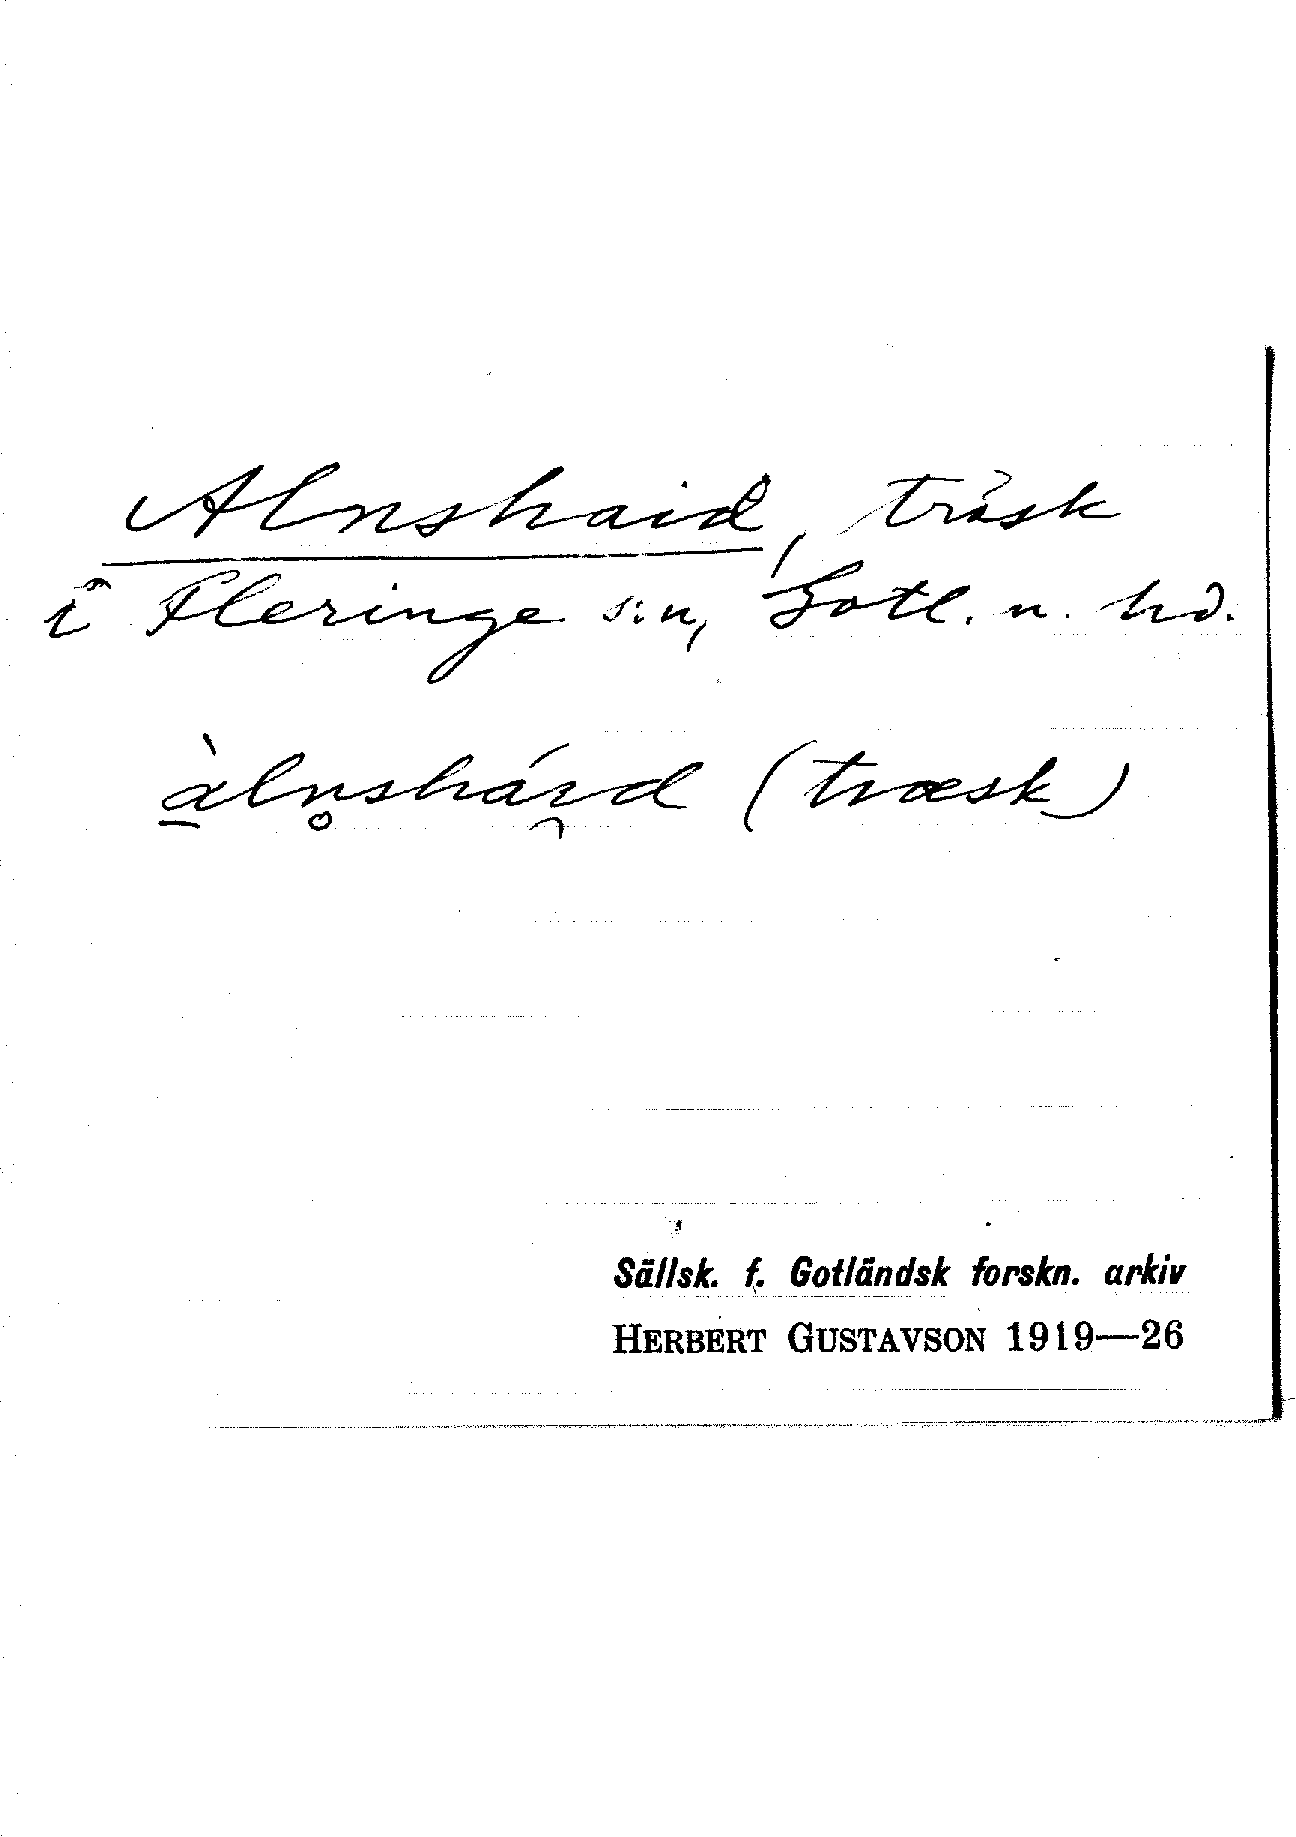 Alnshaid, träsk
i Fleringe s:n, Gotl. n. hd.
àln̥shái̯d (træsk)
Sällsk. f. Gotländsk forskn. arkiv
HERBERT GUSTAVSON 1919—26